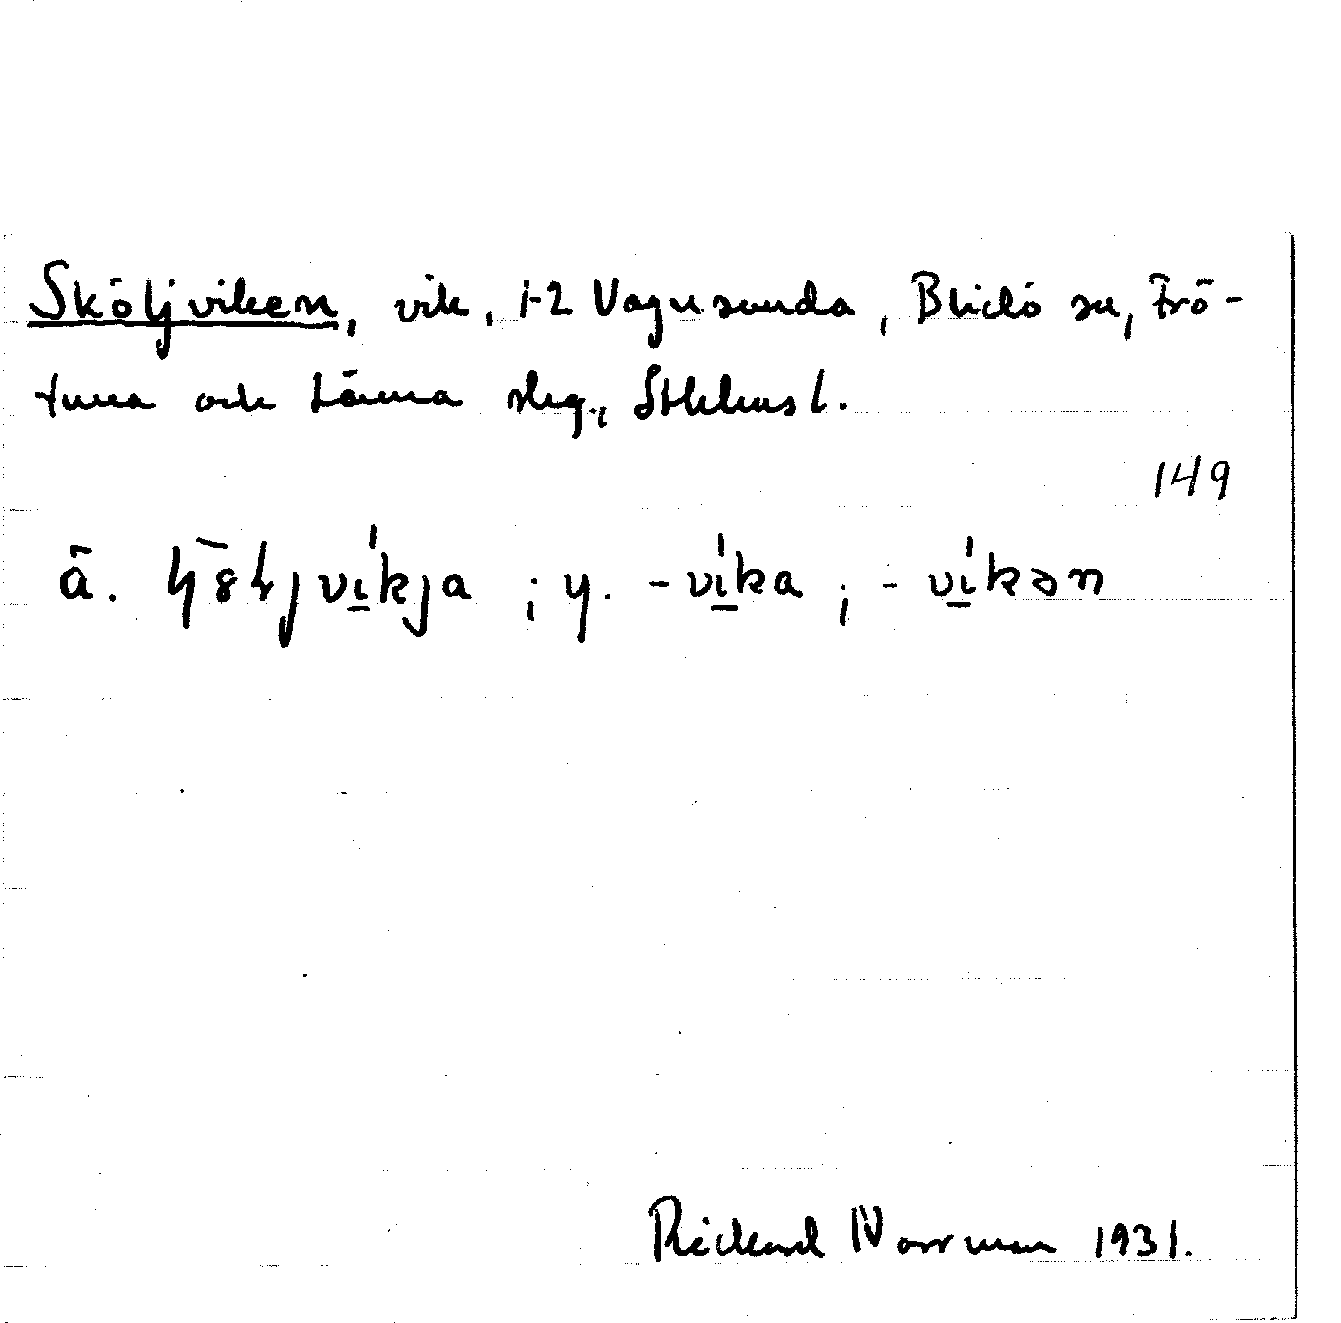 Sköljviken, vik, 1-2 Vagnsunda, Blidö sn, Frö-
tuna och Länna skg., Sthlms l.
149
ä. -vika; -vikən
Rickard Norrman 1931.